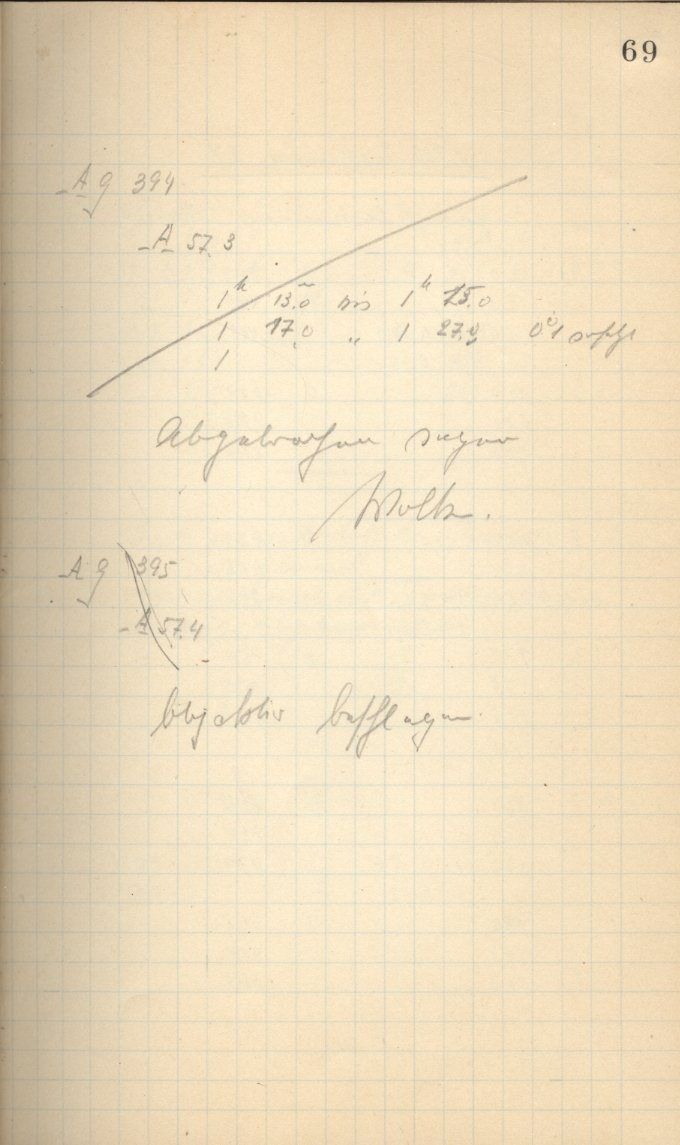 69
A g 394
A 57.3
1h 13m.0 bis 1h 15.0
1 17.0 „ 1 27.0 0°1
1
Abgebrochen wegen
Wolken.
A g 395
A 57.4
Objektiv beschlagen.